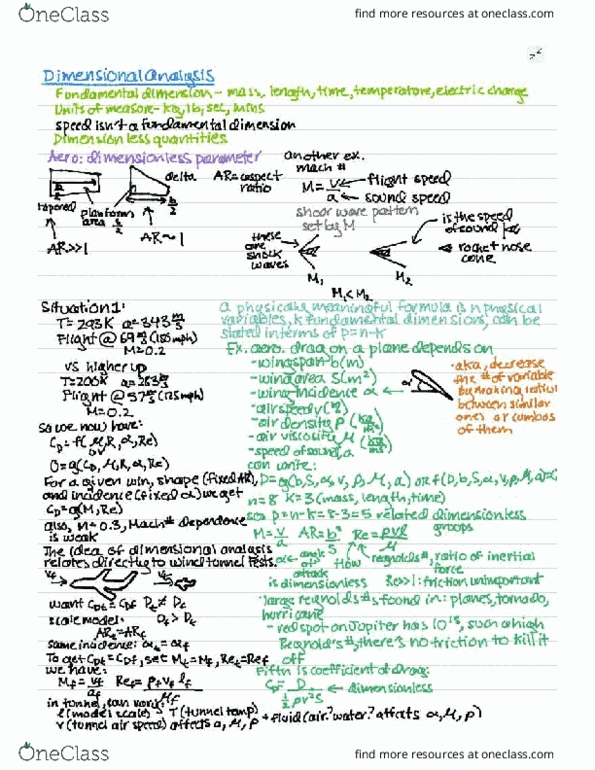 OneClass
find more resources at oneclass.com
Dimensional analysis
Fundamental dimension - mass, length, time, temperature, electric charge
Units of measure - kg, lb, sec, mins
speed isn't a fundamental dimension
Dimensionless quantities
Aero: dimensionless parameter
delta
AR = aspect ratio
tapered
planform area
AR>>1
AR~1
another ex.
mach #
M = v/a
flight speed
sound speed
shock wave pattern
set by M
these are shock waves
is the speed of sound
rocket nose cone
M1
M2
M1 < M2
Situation 1:
T = 293K a = 343 m/s
Flight @ 69 m/s (155mph)
M = 0.2
vs higher up
T = 200K a = 283 m/s
Flight @ 57 m/s (125mph)
M = 0.2
so we now have:
CD = f(M, AR, α, Re)
or
0 = g(CD, M, AR, α, Re)
For a given win, shape (fixed AR),
and incidence (fixed α) we get
CD = g(M, Re)
also, M = 0.3, Mach # dependence
is weak
The idea of dimensional analysis
relates directly to wind tunnel tests.
want CDt = CDf Dt ≠ Df
scale model:
Df > Dt
ARt = ARf
same incidence: αt = αf
To get CDt = CDf, set Mt = Mf, Ret = Ref
we have:
Mf = vf/af Ref = ρf vf lf/μf
in tunnel, can vary:
l (model scale) T (tunnel temp)
v (tunnel air speed) affects a, μ, ρ + fluid (air? water? affects α, μ, ρ)
a physically meaningful formula is n physical
variables, k fundamental dimensions, can be
stated in terms of p=n-k
Ex. aero. drag on a plane depends on
- wingspan b (m)
- wing area S (m²)
- wing incidence α
- airspeed v
- air density, ρ
- air viscosity, μ
- speed of sound, a
aka, decrease
the # of variable
by making ratios
between similar
ones or combos
of them
can write:
D = g(b, S, α, v, ρ, μ, a) or f(D, b, S, α, v, ρ, μ, a) = 0
n = 8 k = 3 (mass, length, time)
so p = n-k = 8-3 = 5 related dimensionless
groups
M = v/a AR = b²/S Re = ρvl/μ
α ← angle of attack
is dimensionless
reynolds #, ratio of inertial
force
Re>>1: friction unimportant
- large reynolds #s found in: planes, tornado,
hurricane
- red spot on Jupiter has 10^15, such a high
Reynold's #, there's no friction to kill it
off
Fifth is coefficient of drag:
CD = D / ½ρv²S ← dimensionless
OneClass
find more resources at oneclass.com